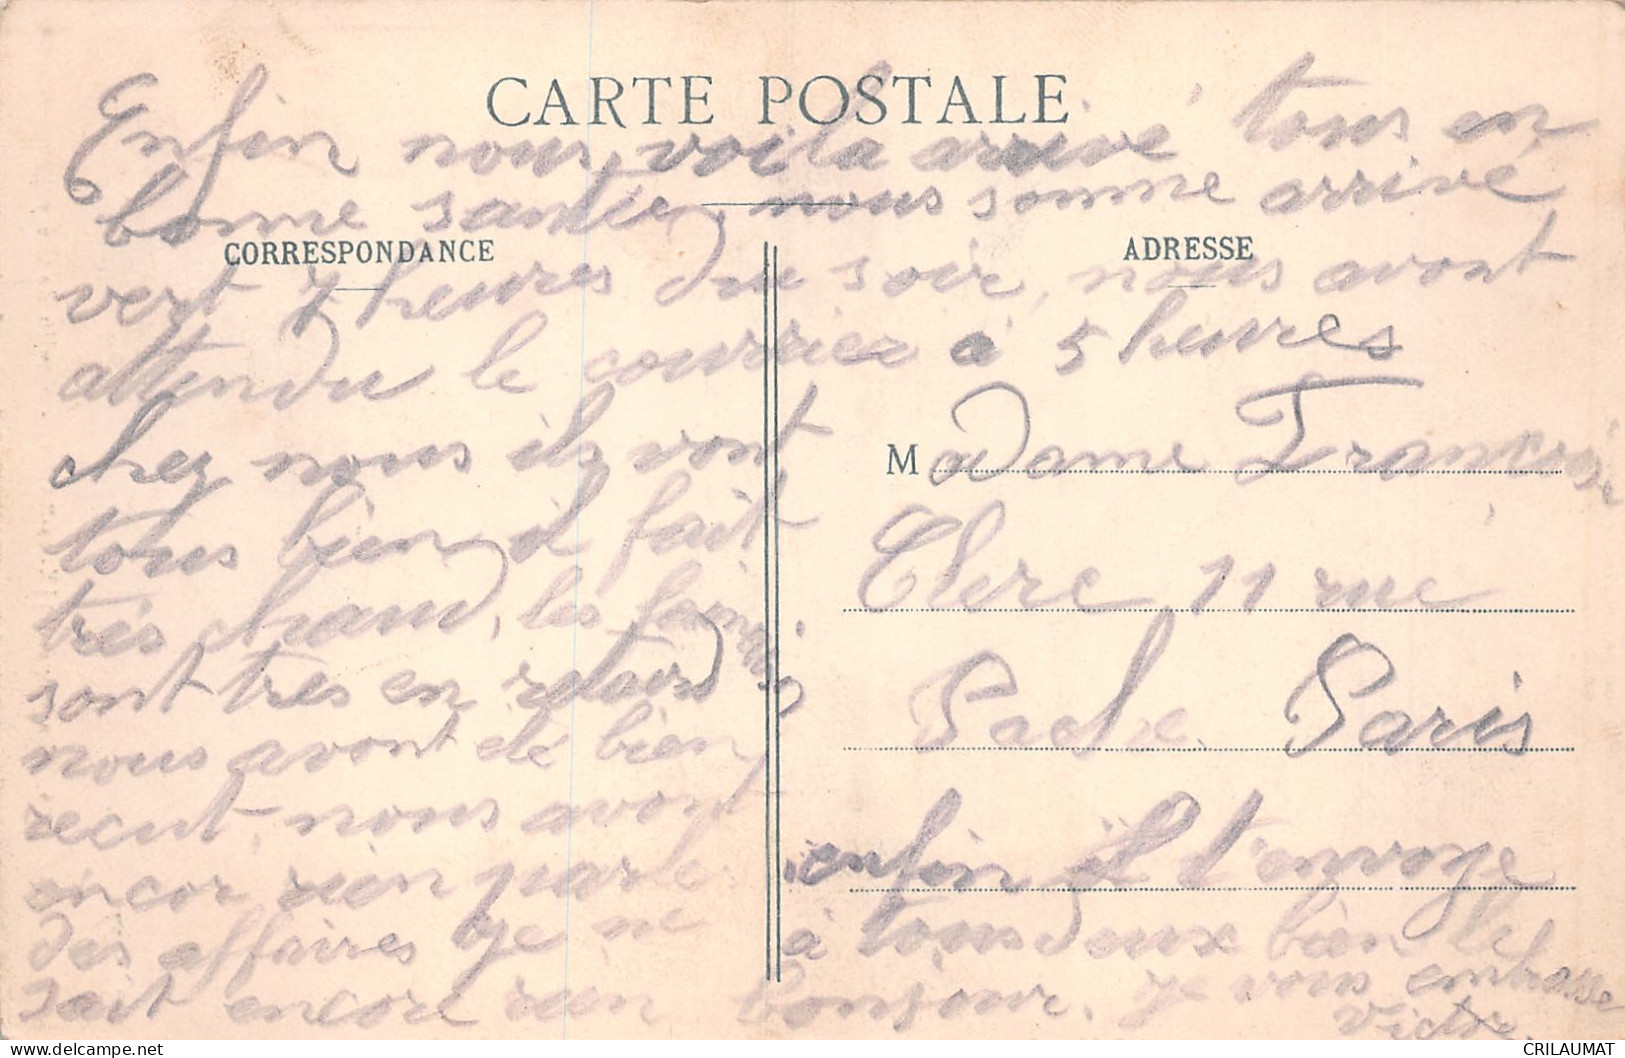 CARTE POSTALE
Enfin nous voila arrivé tous en
bonne santée, nous somme arrivé
CORRESPONDANCE
ADRESSE
vert 7 heures du soir, nous avont
attendu le courrier à 5 heures
chez nous ils vont
tous bien il fait
très chaud, les
sont tres en retard
nous avont été bien
recut, nous avont
encor rien parle
des affaires je ne
sait encore rien
Madame Francoise
Clerc 11 rue
Pache. Paris
enfin il t'envoye
à tous deux bien le
bonjour. je vous embrasse
Victor.
CRILAUMAT